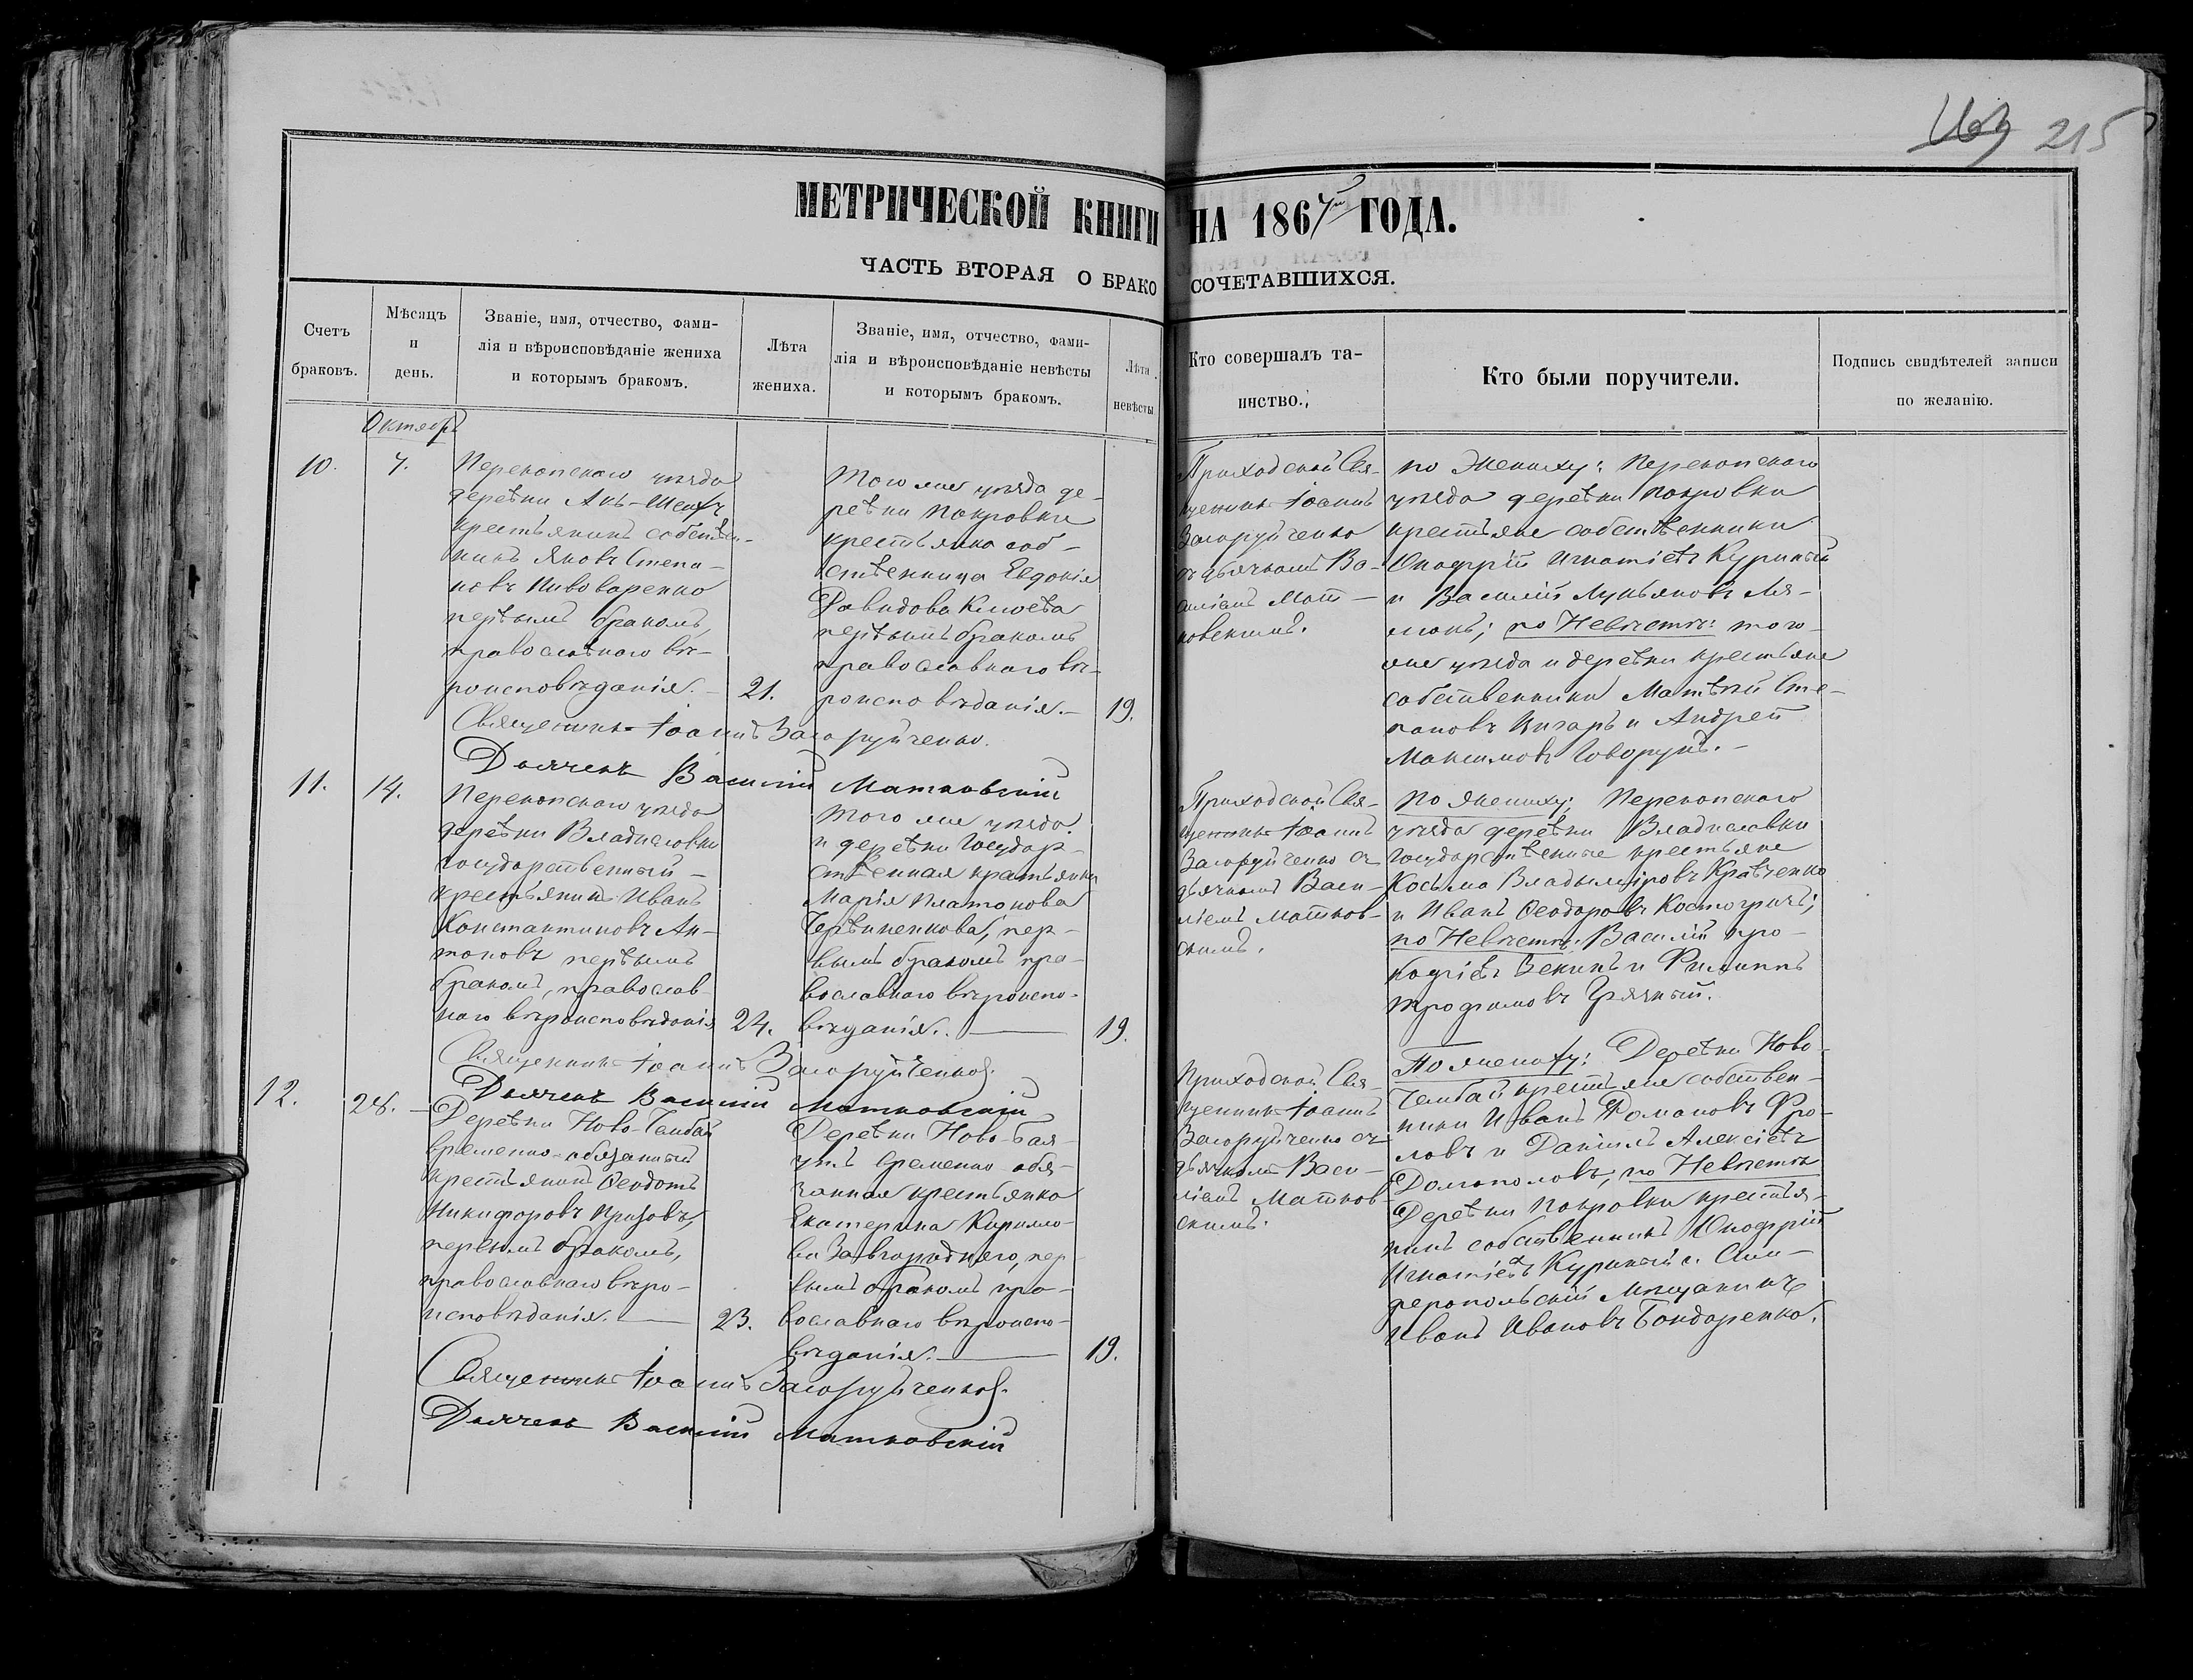 215
МЕТРИЧЕСКОЙ КНИГИ НА 1867 ГОДА.
ЧАСТЬ ВТОРАЯ О БРАКОСОЧЕТАВШИХСЯ.
Счетъ
браковъ.
Мѣсяцъ
и
день.
Званіе, имя, отчество, фами-
лія и вѣроисповѣданіе жениха
и которымъ бракомъ.
Лѣта
жениха.
Званіе, имя, отчество, фами-
лія и вѣроисповѣданіе невѣсты
и которымъ бракомъ.
Лѣта
невѣсты
Кто совершалъ та-
инство.
Кто были поручители.
Подпись свидѣтелей записи
по желанію.
Октябрь
10.
7.
Перекопскаго уѣзда
деревни Акъ-Шеихъ
крестьянинъ собствен-
никъ Яковъ Степа-
новъ Пивоваренко
первымъ бракомъ,
православнаго вѣ-
роисповѣданія.
21.
Того же уѣзда де-
ревни Покровки
крестьянка соб-
ственница Евдокія
Давидова
первымъ бракомъ
православнаго вѣ-
роисповѣданія.
19.
Приходской Свя-
щенникъ Іоаннъ
Загоруйченко
съ дьячкомъ Ва-
силіемъ Мат-
ковскимъ.
по Жениху: Перекопскаго
уѣзда деревни Покровки
крестьяне собственники
Онофрій Игнатіевъ Куриный
и Василій Лукьяновъ Ля-
по Невѣстѣ: того-
же уѣзда и деревни крестьяне
собственники Матвей Сте-
пановъ и Андрей
Максимовъ Говорунъ.
Священникъ Іоаннъ Загоруйченко.
Дьячекъ Василій Матковскій
11.
14.
Перекопскаго уѣзда
деревни Владиславки
государственный
крестьянинъ Иванъ
Константиновъ Ан-
тоновъ первымъ
бракомъ, православ-
наго вѣроисповѣданія
24.
Того же уѣзда
и деревни Государ-
ственная крестьянка
Марія Платонова
Червиненкова, пер-
вымъ бракомъ пра-
вославнаго вѣроиспо-
вѣданія.
19.
Приходской Свя-
щенникъ Іоаннъ
Загоруйченко съ
дьячкомъ Васи-
ліемъ Матков-
скимъ.
По жениху: Перекопскаго
уѣзда деревни Владиславки
Государственные крестьяне
Косьма Владыміровъ Кравченко
и Иванъ Ѳеодоровъ Костогризъ;
по Невѣстѣ: Василій Про-
кофіевъ Зекинъ и Филиппъ
Трофимовъ Грязный.
Священникъ Іоаннъ Загоруйченко.
Дьячекъ Василій Матковскій
12.
28.
Деревни Ново-Чембай
временно-обязанный
крестьянинъ Ѳеодотъ
Никифоровъ Призовъ,
первымъ бракомъ,
православнаго вѣро-
исповѣданія.
23.
Деревни Ново-Бая-
утъ временно обя-
занная крестьянка
Екатерина Кирилло-
ва Завгородняго, пер-
вымъ бракомъ пра-
вославнаго вѣроиспо-
вѣданія.
19.
Приходской Свя-
щенникъ Іоаннъ
Загоруйченко съ
дьячкомъ Васи-
ліемъ Матков-
скимъ.
По жениху: Деревни Ново-
Чембай крестьяне собствен-
ники Иванъ Романовъ Фро-
ловъ и Даніилъ Алексіевъ
Долгополовъ; по Невѣстѣ
Деревни Покровки крестья-
нинъ собственникъ Онофрій
Игнатіевъ Куриный и Сим-
феропольскій Мѣщанинъ
Иванъ Ивановъ Бондаренко.
Священникъ Іоаннъ Загоруйченко.
Дьячекъ Василій Матковскій